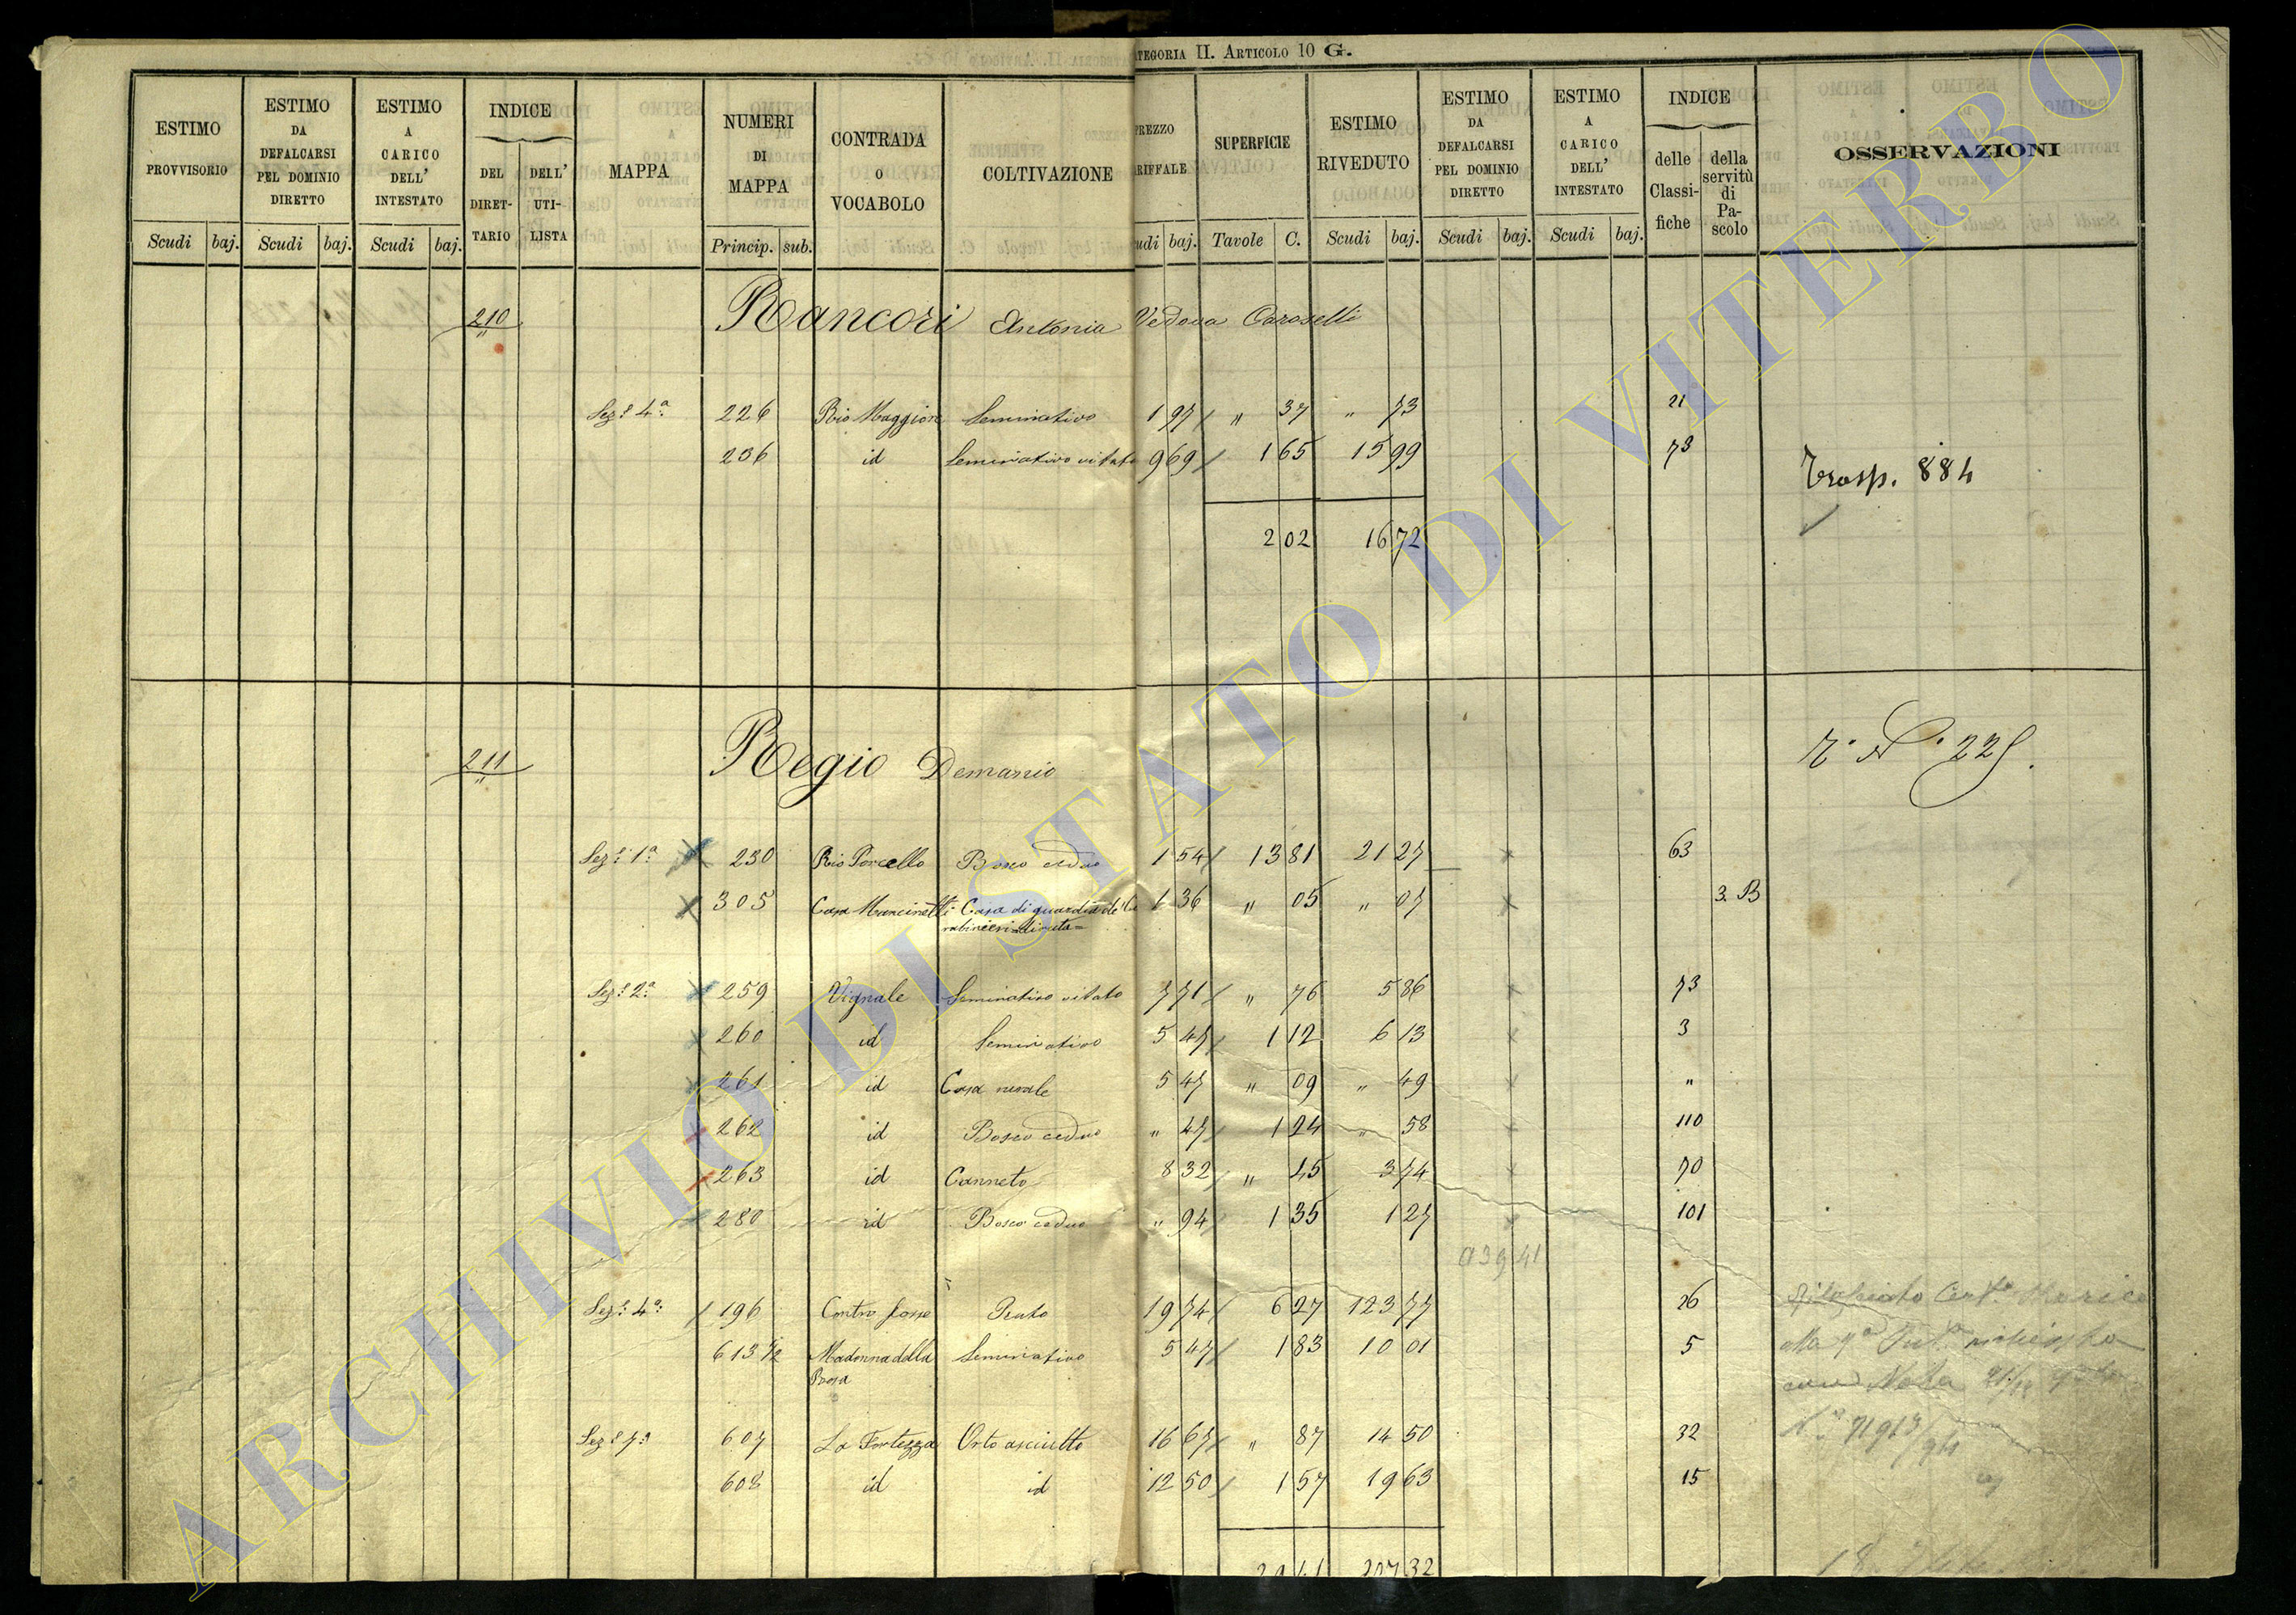 CATEGORIA II. ARTICOLO 10 G.
ESTIMO PROVVISORIO
ESTIMO DA DEFALCARSI PEL DOMINIO DIRETTO
ESTIMO A CARICO DELL' INTESTATO
INDICE
DEL DIRET-TARIO
DELL' UTI-LISTA
MAPPA
NUMERI DI MAPPA
CONTRADA O VOCABOLO
COLTIVAZIONE
PREZZO TARIFFALE
SUPERFICIE
ESTIMO RIVEDUTO
ESTIMO DA DEFALCARSI PEL DOMINIO DIRETTO
ESTIMO A CARICO DELL' INTESTATO
INDICE
delle Classi-fiche
della servitù di Pa-scolo
OSSERVAZIONI
Scudi baj. Scudi baj. Scudi baj. Princip. sub. Scudi baj. Tavole C. Scudi baj. Scudi baj. Scudi baj.
210 Rancori Antonia Vedova Caroselli
Sez.e 4a 226 Rio Maggiore Seminativo 1 97 " 37 " 73 21
236 id Seminativo vitato 9 69 1 65 15 99 73
Trasp. 884
2 02 16 72
211 Regio Demanio
Sez.e 1a 230 Rio Porcello Bosco ceduo 1 54 13 81 21 27 63
305 Casa Mancinelli Casa di guardia de' Ca
rabinieri diruta 1 36 " 05 " 07 3. B
Sez.e 2a 259 Vignale Seminativo vitato 7 71 " 76 5 86 73
260 id Seminativo 5 47 1 12 6 13 3
261 id Casa rurale 5 47 " 09 " 49 "
262 id Bosco ceduo " 47 1 24 " 58 110
263 id Canneto 8 32 " 45 3 74 70
280 id Bosco ceduo " 94 1 35 1 27 101
39 41
Sez.e 4a 196 Contro fosse Prato 19 74 6 27 123 77 26
613 1/2 Madonna della
Rosa Seminativo 5 47 1 83 10 01 5
Sez.e 7a 607 La Fortezza Orto asciutto 16 67 " 87 14 50 32
608 id id 12 50 1 57 19 63 15
207 32
ARCHIVIO DI STATO DI VITERBO